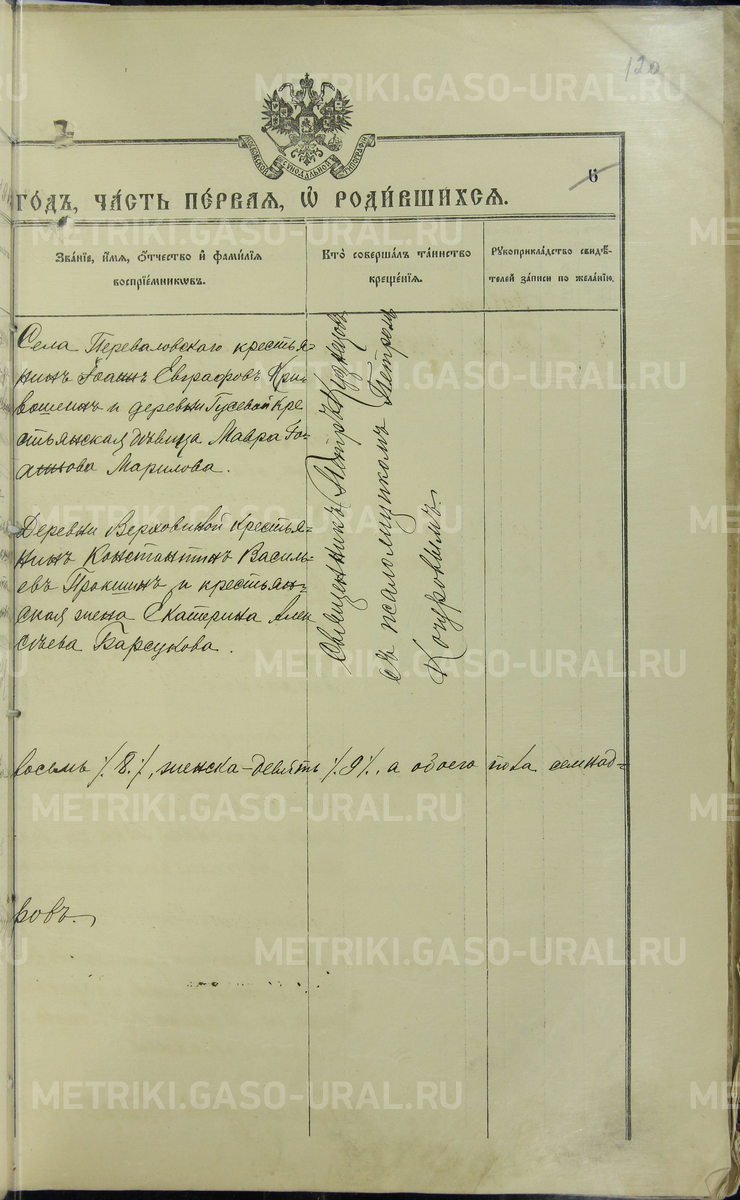 120
МОСКОВСКОЙ СѴНОДАЛЬНОЙ ТИПОГРАФІИ
6
ГОДЪ, ЧАСТЬ ПЕРВАЯ, Ѡ РОДИВШИХСЯ.
Званіе, имя, отчество и фамилія
воспріемниковъ.
Кто совершалъ таинство
крещенія.
Рукоприкладство свидѣ-
телей записи по желанію.
Села Переваловскаго крестья-
нинъ Іоаннъ Евграфовъ Кри-
вошеинъ и деревни Гусевой кре
стьянская дѣвица Мавра Іо-
аннова Марилова.
Деревни Верховиной крестья-
нинъ Константинъ Василь-
евъ Прокшинъ и крестьян-
ская жена Екатерина Алек
сѣева Барсукова.
Священникъ Петръ Кузнецов
съ псаломщикомъ Петромъ
Кочуровымъ.
восемь /8/, женска-девять /9/, а обоего пола семнад-
ровъ.
METRIKI.GASO-URAL.RU